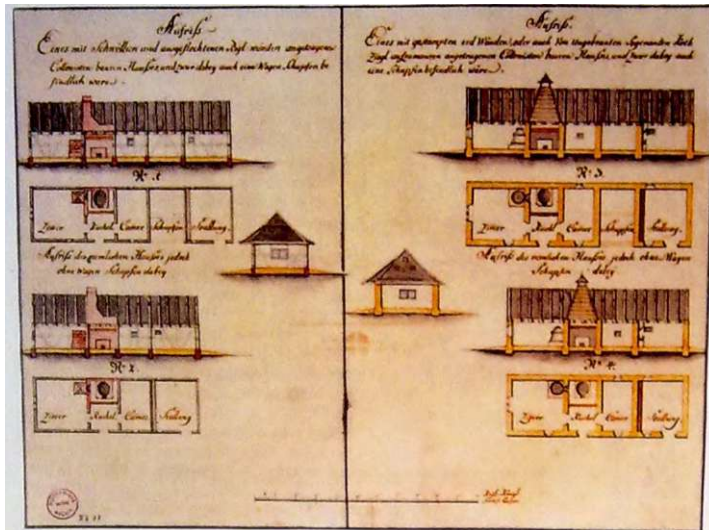 Aufriß.
Eines mit Schwellen und ausgeflochtenen Rigl wänden angetragenen
Collonisten baaren Haußes, und zwar dabey auch eine Wagen Schupfen be
findlich wäre.
Nr. 1.
Zimer Kuchel Camer Schupfen Stallung
Aufriß des nemlichen Haußes jedoch
ohne Wagen Schupfen dabey
Nr. 2.
Zimer Kuchel Camer Stallung
Aufriß.
Eines mit gestampten Erd Wänden, oder auch Von Ungebranten Sogenanten Koth
Zigl angetragenen Collonisten baaren Haußes, und zwar dabey auch
eine Schupfen befindlich wäre.
Nr. 3.
Zimer Kuchel Camer Schupfen Stallung
Aufriß des nemlichen Haußes jedoch ohne Wagen
Schupfen dabey
Nr. 4.
Zimer Kuchel Camer Stallung